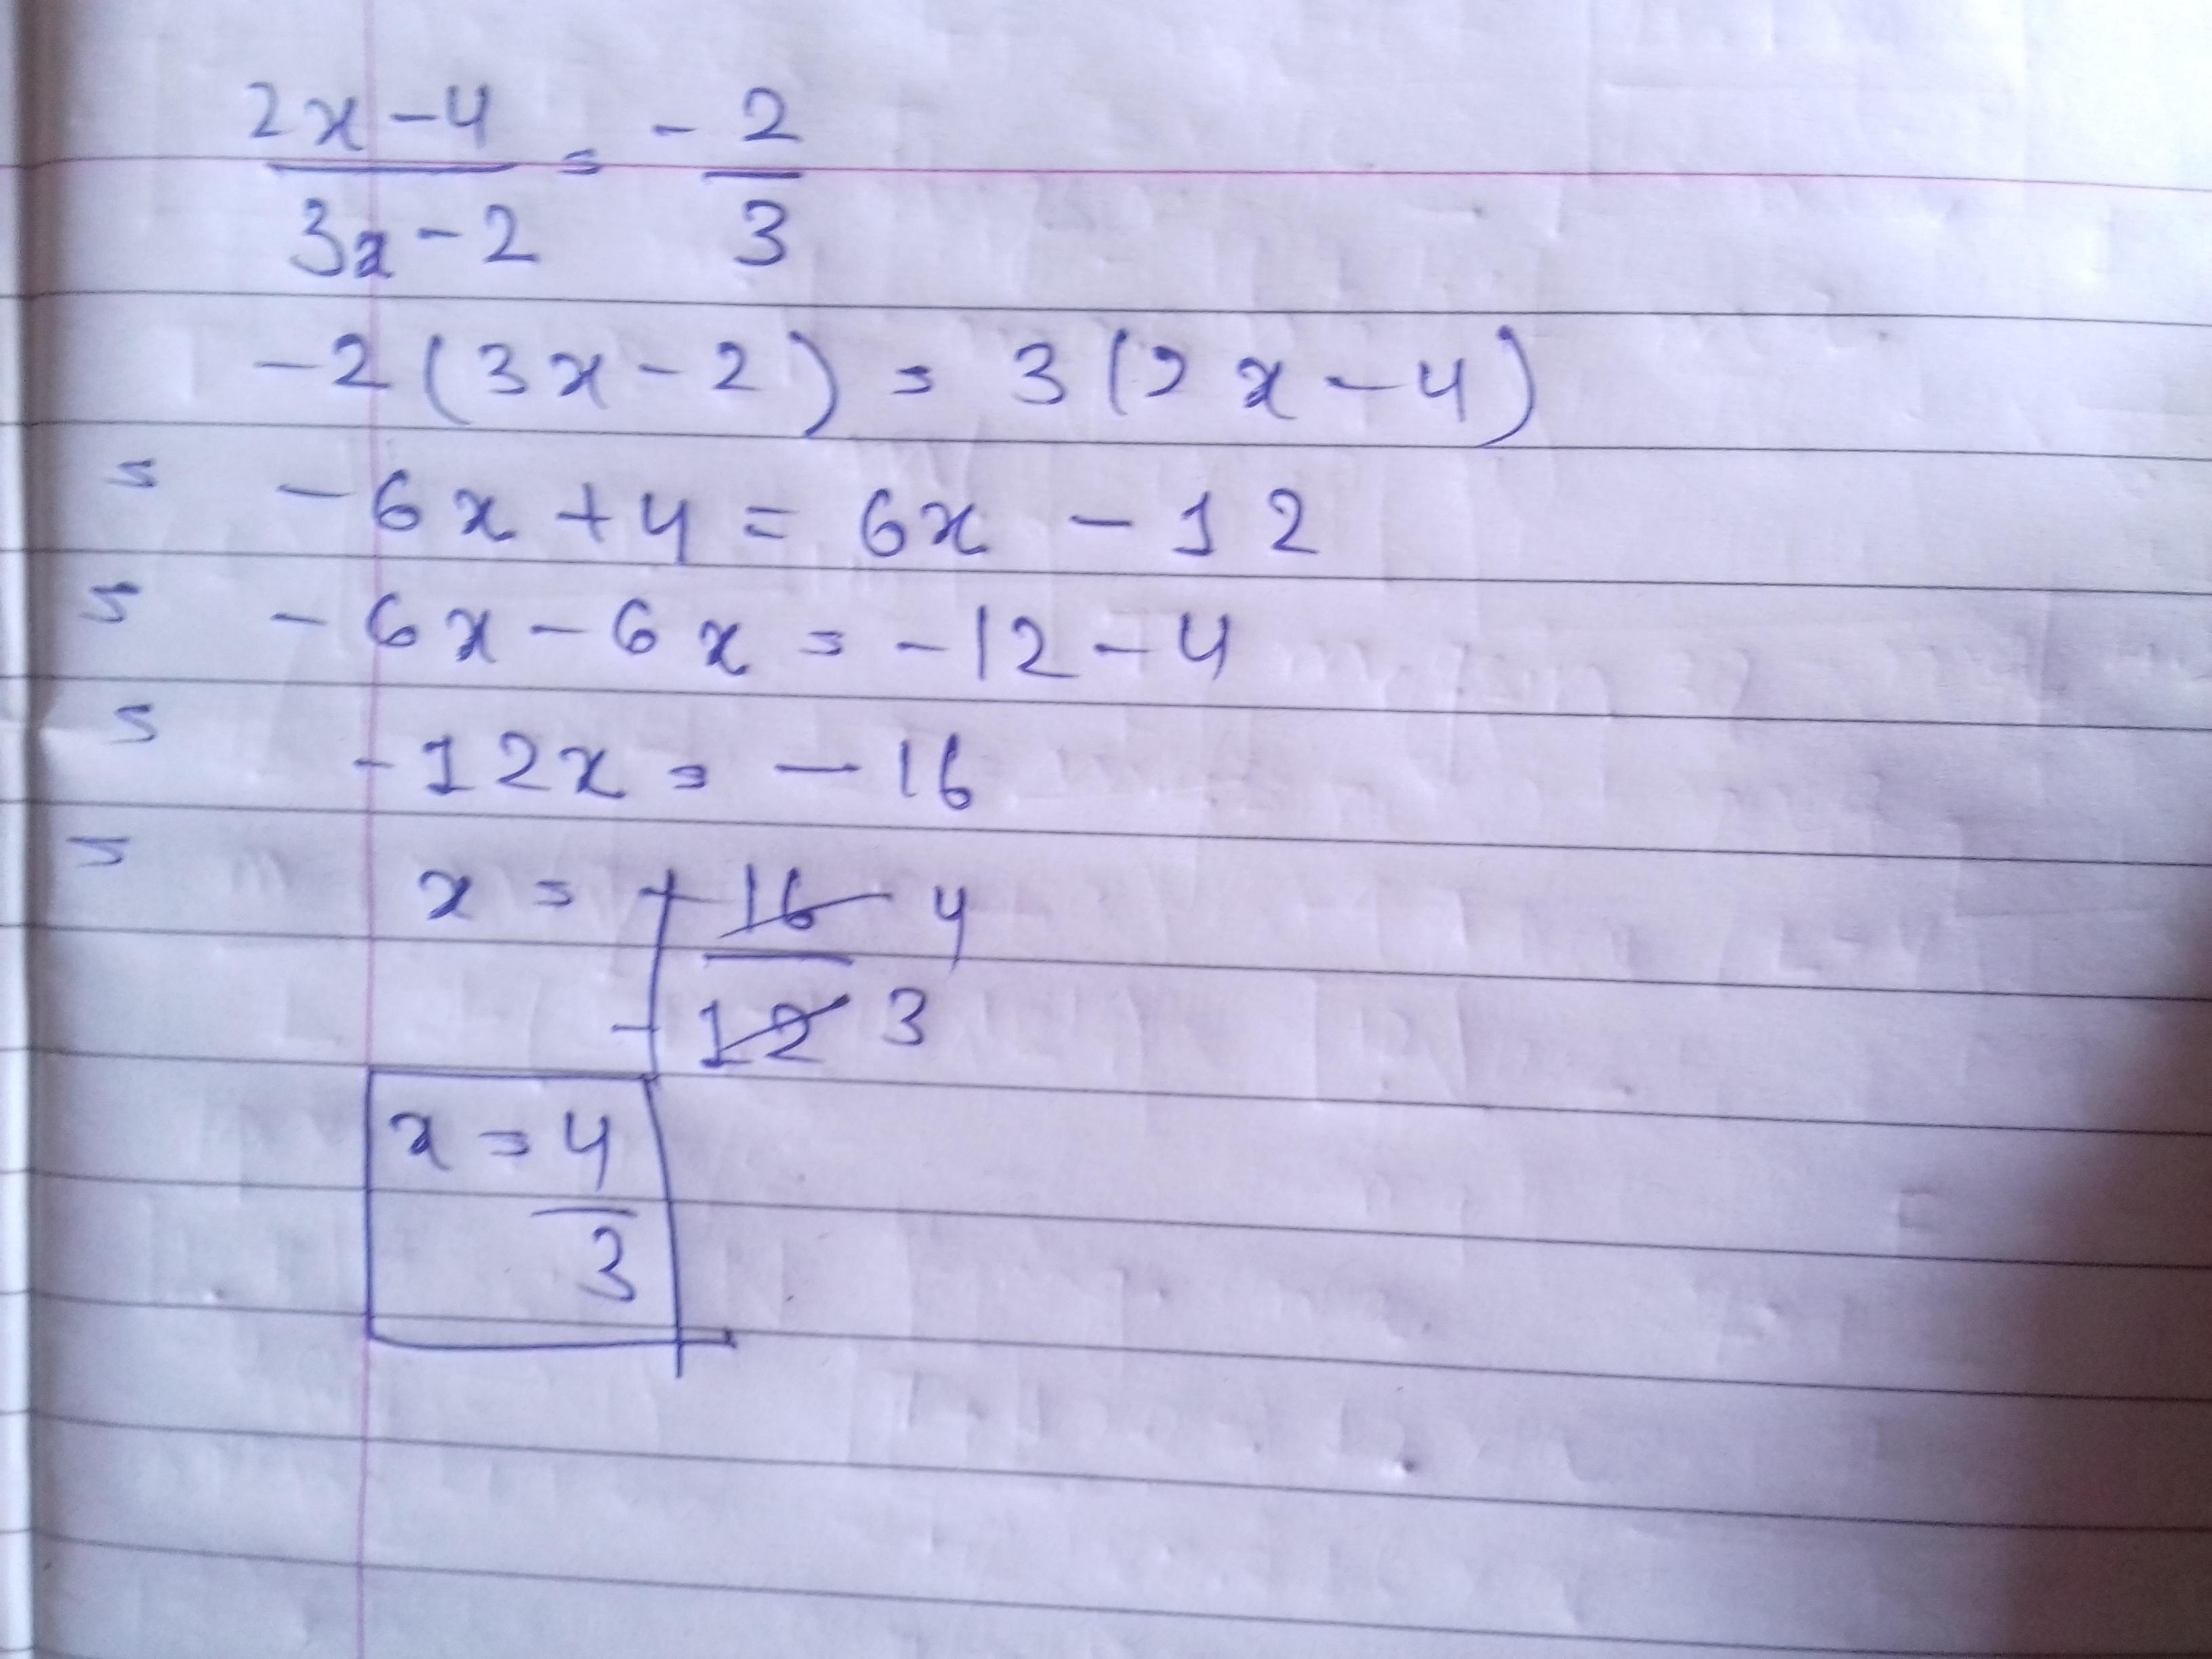 2x-4/3x-2 = -2/3
-2(3x-2) = 3(2x-4)
= -6x+4 = 6x - 12
= -6x-6x = -12-4
= -12x = -16
= x = -16/-12 4/3
x = 4/3